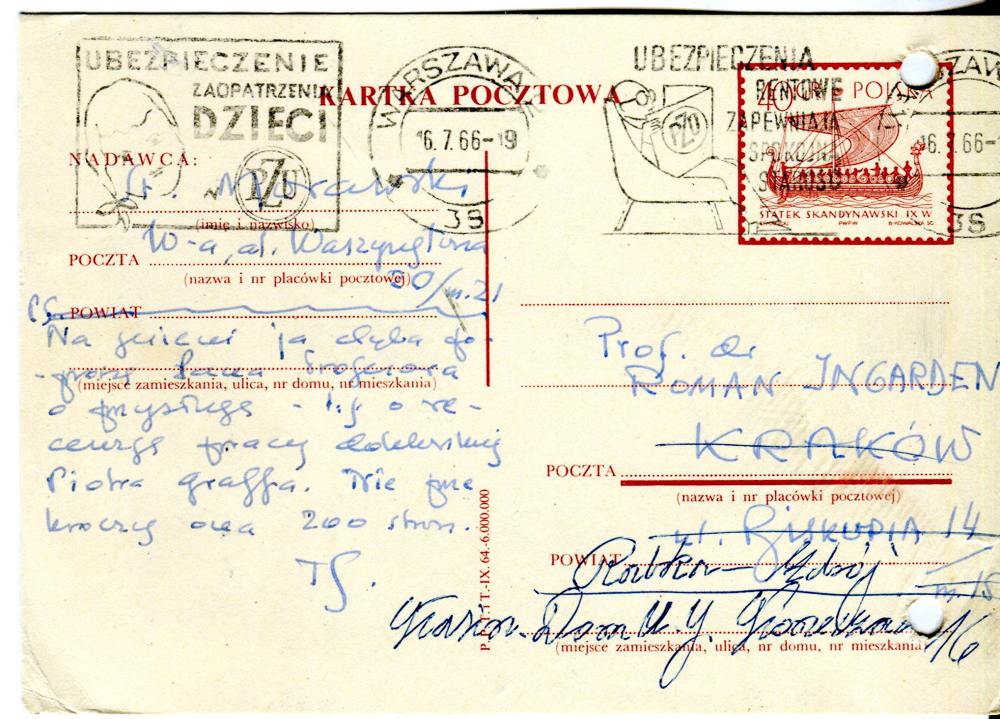 UBEZPIECZENIE
ZAOPATRZENIA
DZIECI
PZU
WARSZAWA
16.7.66-19
38
UBEZPIECZENIA
RENTOWE
ZAPEWNIAJĄ
SPOKOJNĄ
STAROŚĆ
PZU
16.7.66-
38
40 GR POLSKA
STATEK SKANDYNAWSKI IX W
PWPW
KARTKA POCZTOWA
NADAWCA:
St. Morawski
(imię i nazwisko)
W-a, al. Waszyngtona
POCZTA
(nazwa i nr placówki pocztowej)
20/m.21
PS.
POWIAT
Na jesieni ja chyba po-
-proszę Pana Profesora
(miejsce zamieszkania, ulica, nr domu, nr mieszkania)
o przysługę - t.j. o re-
cenzję pracy doktorskiej
Piotra Graffa. Nie prze
kroczy ona 200 stron.
TS.
P.P.T.i T.-IX. 64.-6.000.000
Prof. dr
ROMAN INGARDEN
KRAKÓW
POCZTA
(nazwa i nr placówki pocztowej)
ul. BISKUPIA 14
m. 15
POWIAT
Rabka-Zdrój
Dom
1/6
(miejsce zamieszkania, ulica, nr domu, nr mieszkania)